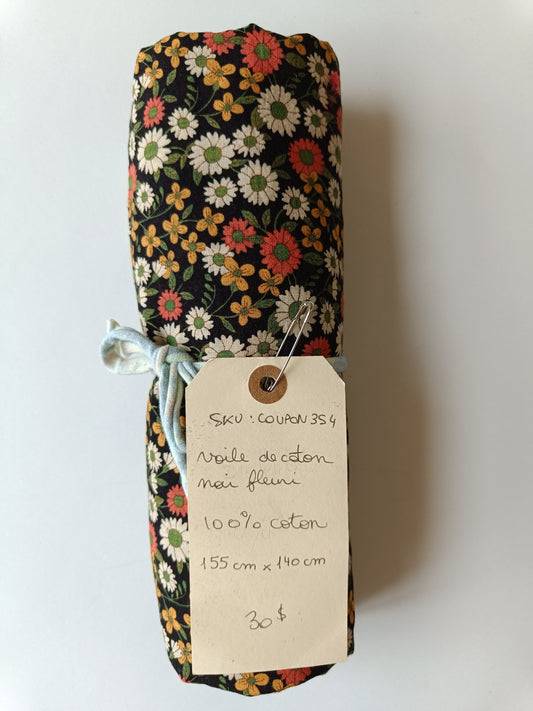 SKU : COUPON 354
voile de coton
noir fleuri
100% coton
155 cm x 140 cm
30 $